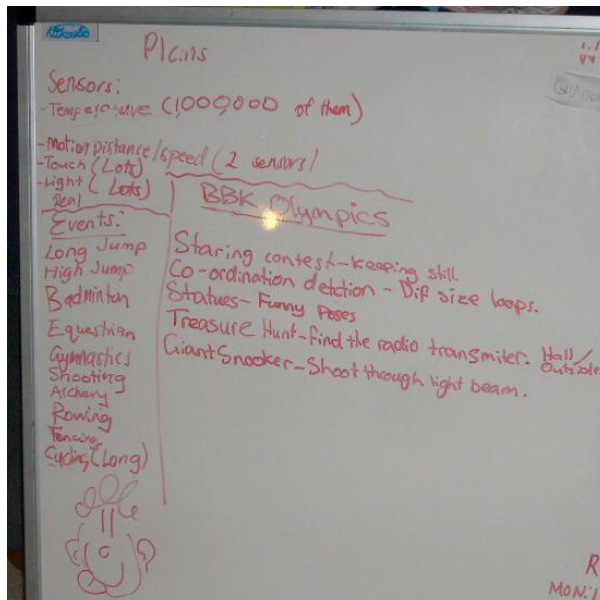 Plans
Sensors:
- Temperature (1,000,000 of them)
- Motion Distance/speed (2 sensors)
- Touch (Lots)
- Light (Lots)
BBK Olympics
Events:
Long Jump
High Jump
Badminton
Equestrian
Gymnastics
Shooting
Archery
Rowing
Fencing
Cycling (Long)
Staring contest - keeping still.
Co-ordination detction - Dif size loops.
Statues - Funny Poses
Treasure Hunt - find the radio transmiter. Hall/
Outside
Giant Snooker - Shoot through light beam.
R
MON: